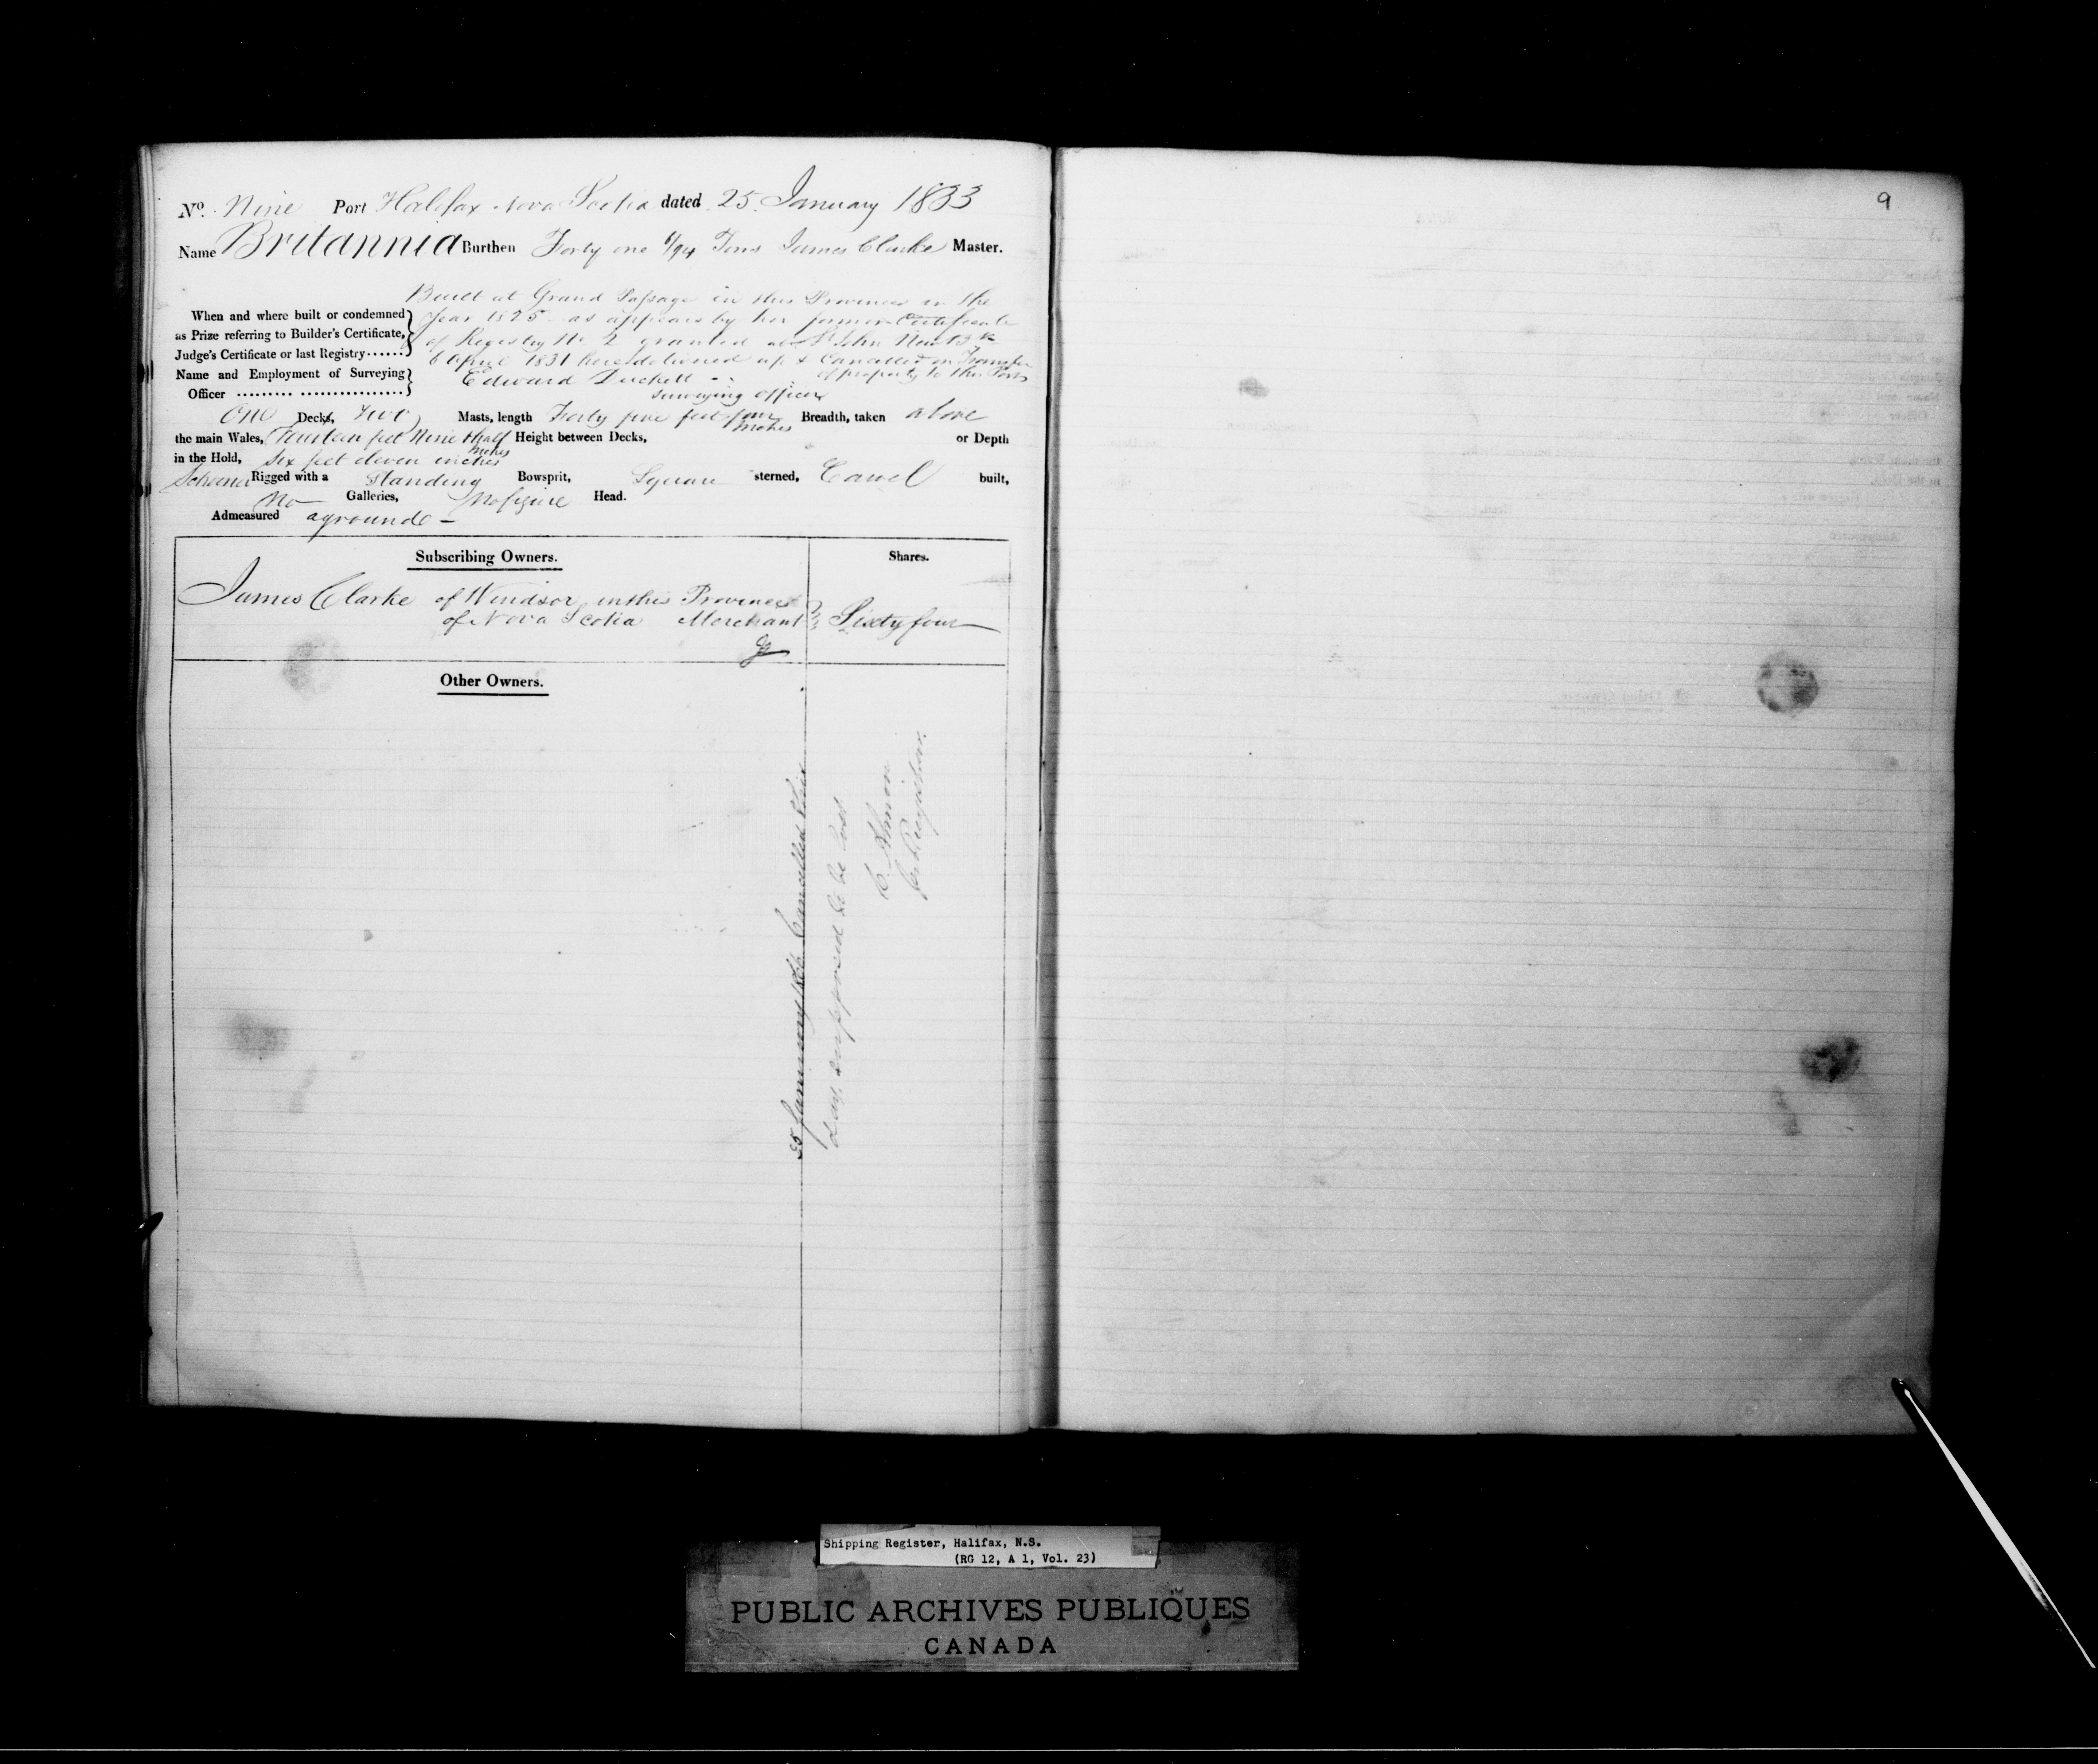 No. Nine Port Halifax Nova Scotia dated 25 January 1833
Name Britannia Burthen Forty one 6/94 Tons James Clarke Master.
Built at Grand Passage in this Province in the
When and where built or condemned year 1825 as appears by her former Certificate
as Prize referring to Builder's Certificate, of Registry No 2 granted at St John New Bk
Judge's Certificate or last Registry...... 6 April 1831 here delivered up & Cancelled on Transfer
of property to this Port
Name and Employment of Surveying Edward
Officer ......... ............... Surveying officer
One Decks, Two Masts, length Forty five feet four inches Breadth, taken above
the main Wales, Fourteen feet Nine & half inches Height between Decks, or Depth
in the Hold, Six feet eleven inches
Schooner Rigged with a Standing Bowsprit, Square sterned, Carvel built,
no Galleries, no figure Head.
Admeasured aground
Subscribing Owners. Shares.
James Clarke of Windsor in this Province
of Nova Scotia Merchant Sixty four
Other Owners.
25 January Cancelled this
day, supposed to be lost
C. Almon
Registrar.
9
Shipping Register, Halifax, N.S.
(RG 12, A 1, Vol. 23)
PUBLIC ARCHIVES PUBLIQUES
CANADA